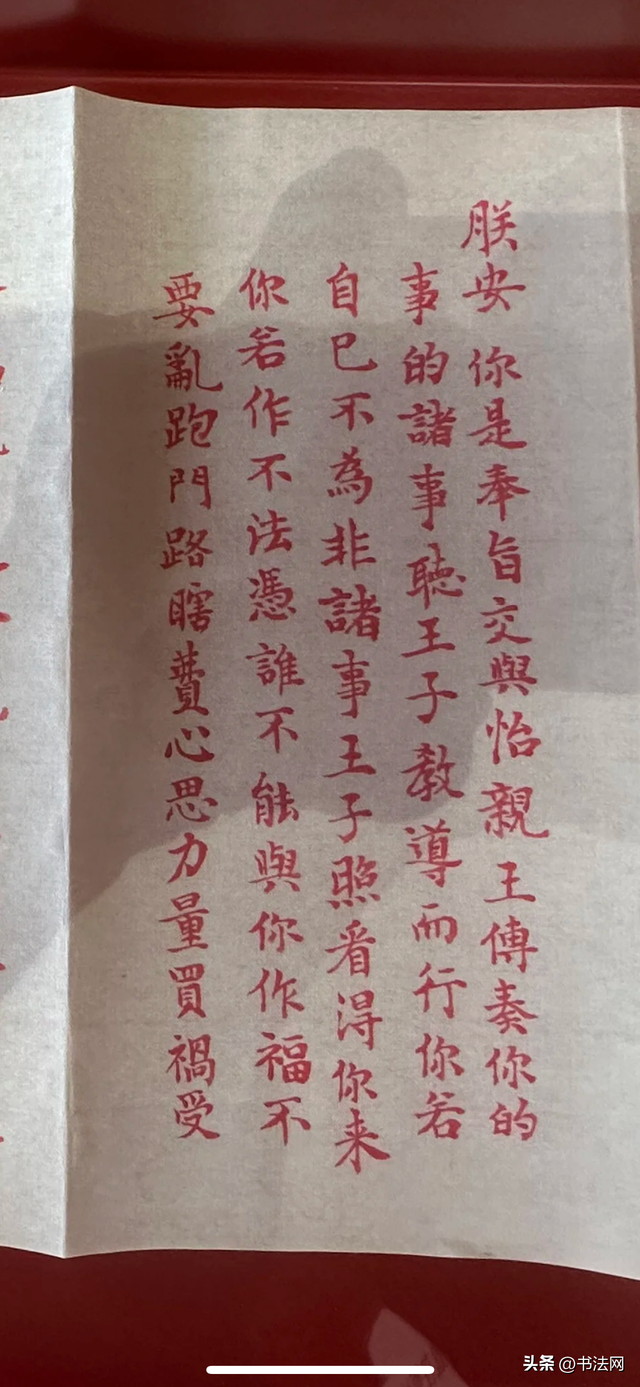 朕安 你是奉旨交與怡親王傳奏你的
事的諸事聽王子教導而行你若
自己不為非諸事王子照看得你来
你若作不法憑誰不能與你作福不
要亂跑門路瞎費心思力量買禍受
头条 @书法网